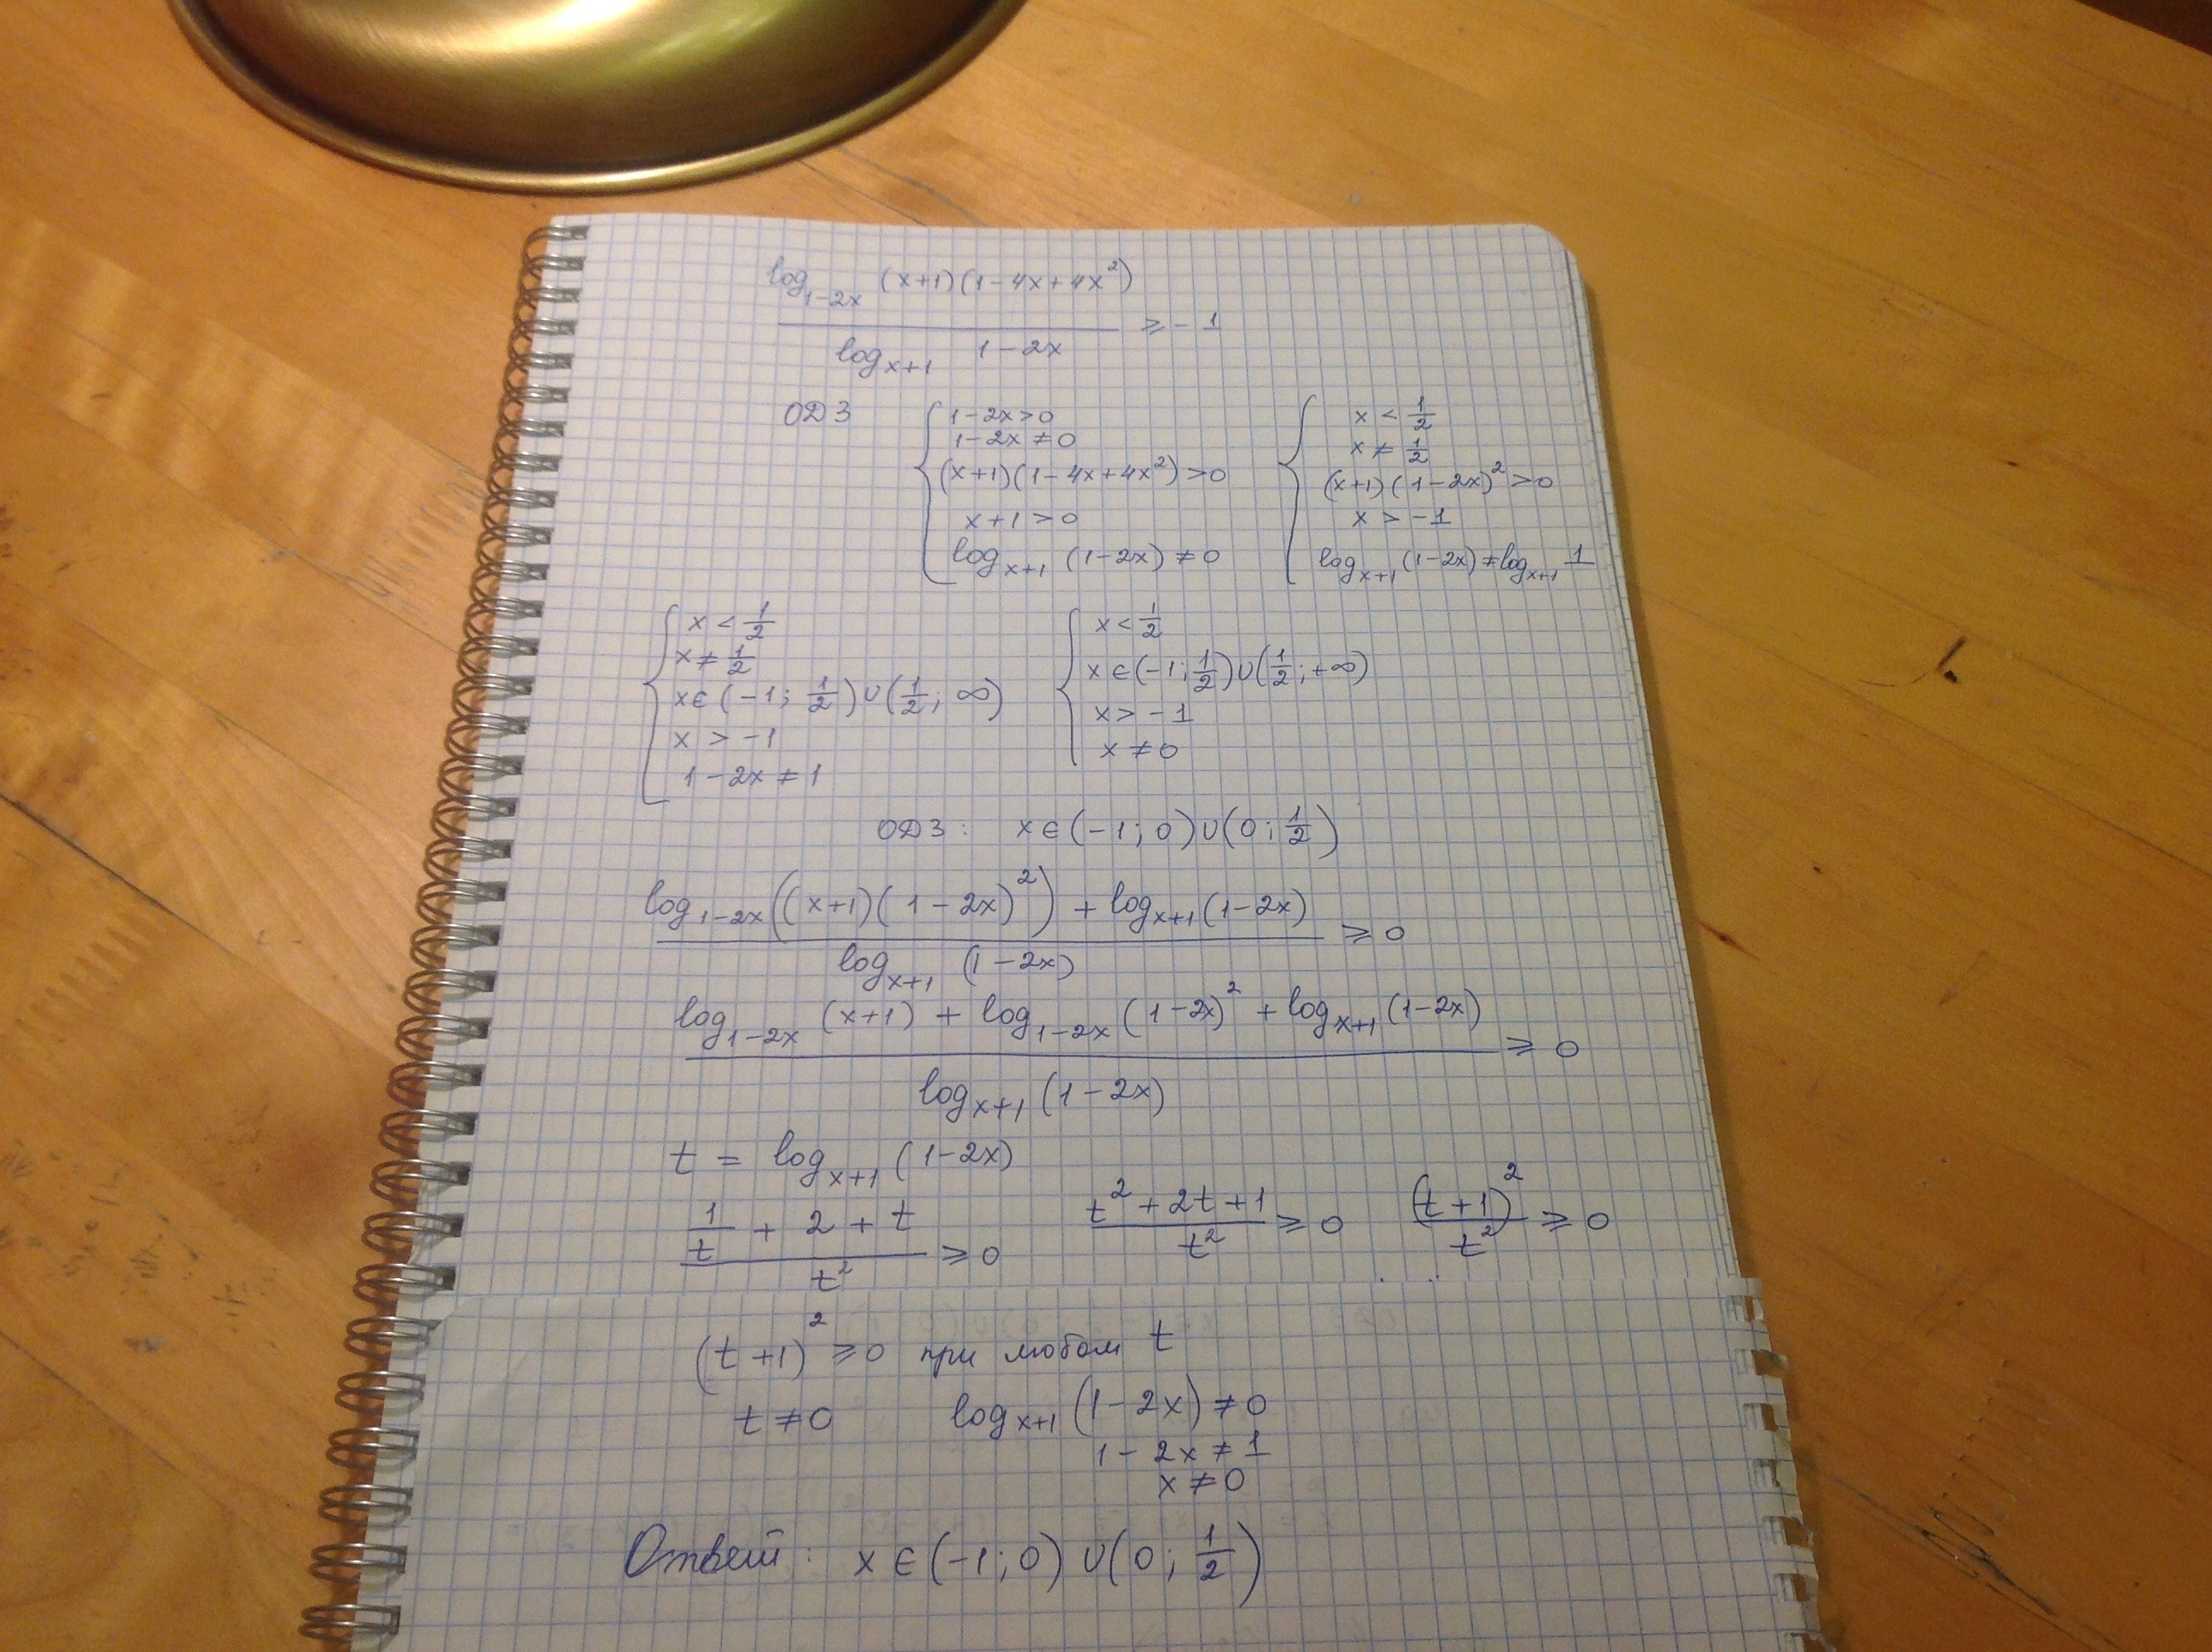 log_{1-2x} (x+1)(1-4x+4x²)
―――――――――――――― ≥ -1
log_{x+1} 1-2x
ОДЗ { 1-2x>0 { x < 1/2
1-2x ≠ 0 x ≠ 1/2
(x+1)(1-4x+4x²) > 0 (x+1)(1-2x)² > 0
x+1 > 0 x > -1
log_{x+1} (1-2x) ≠ 0 log_{x+1} (1-2x) ≠ log_{x+1} 1
{ x < 1/2 { x < 1/2
x ≠ 1/2
x ∈ (-1; 1/2) ∪ (1/2; ∞) x ∈ (-1; 1/2) ∪ (1/2; +∞)
x > -1 x > -1
1-2x ≠ 1 x ≠ 0
ОДЗ: x ∈ (-1; 0) ∪ (0; 1/2)
log_{1-2x} ((x+1)(1-2x)²) + log_{x+1} (1-2x)
―――――――――――――― ≥ 0
log_{x+1} (1-2x)
log_{1-2x} (x+1) + log_{1-2x} (1-2x)² + log_{x+1} (1-2x)
―――――――――――――― ≥ 0
log_{x+1} (1-2x)
t = log_{x+1} (1-2x)
(1/t + 2 + t)/t² ≥ 0 (t² + 2t + 1)/t² ≥ 0 (t+1)²/t² ≥ 0
(t+1)² ≥ 0 при любом t
t ≠ 0 log_{x+1} (1-2x) ≠ 0
1-2x ≠ 1
x ≠ 0
Ответ: x ∈ (-1; 0) ∪ (0; 1/2)